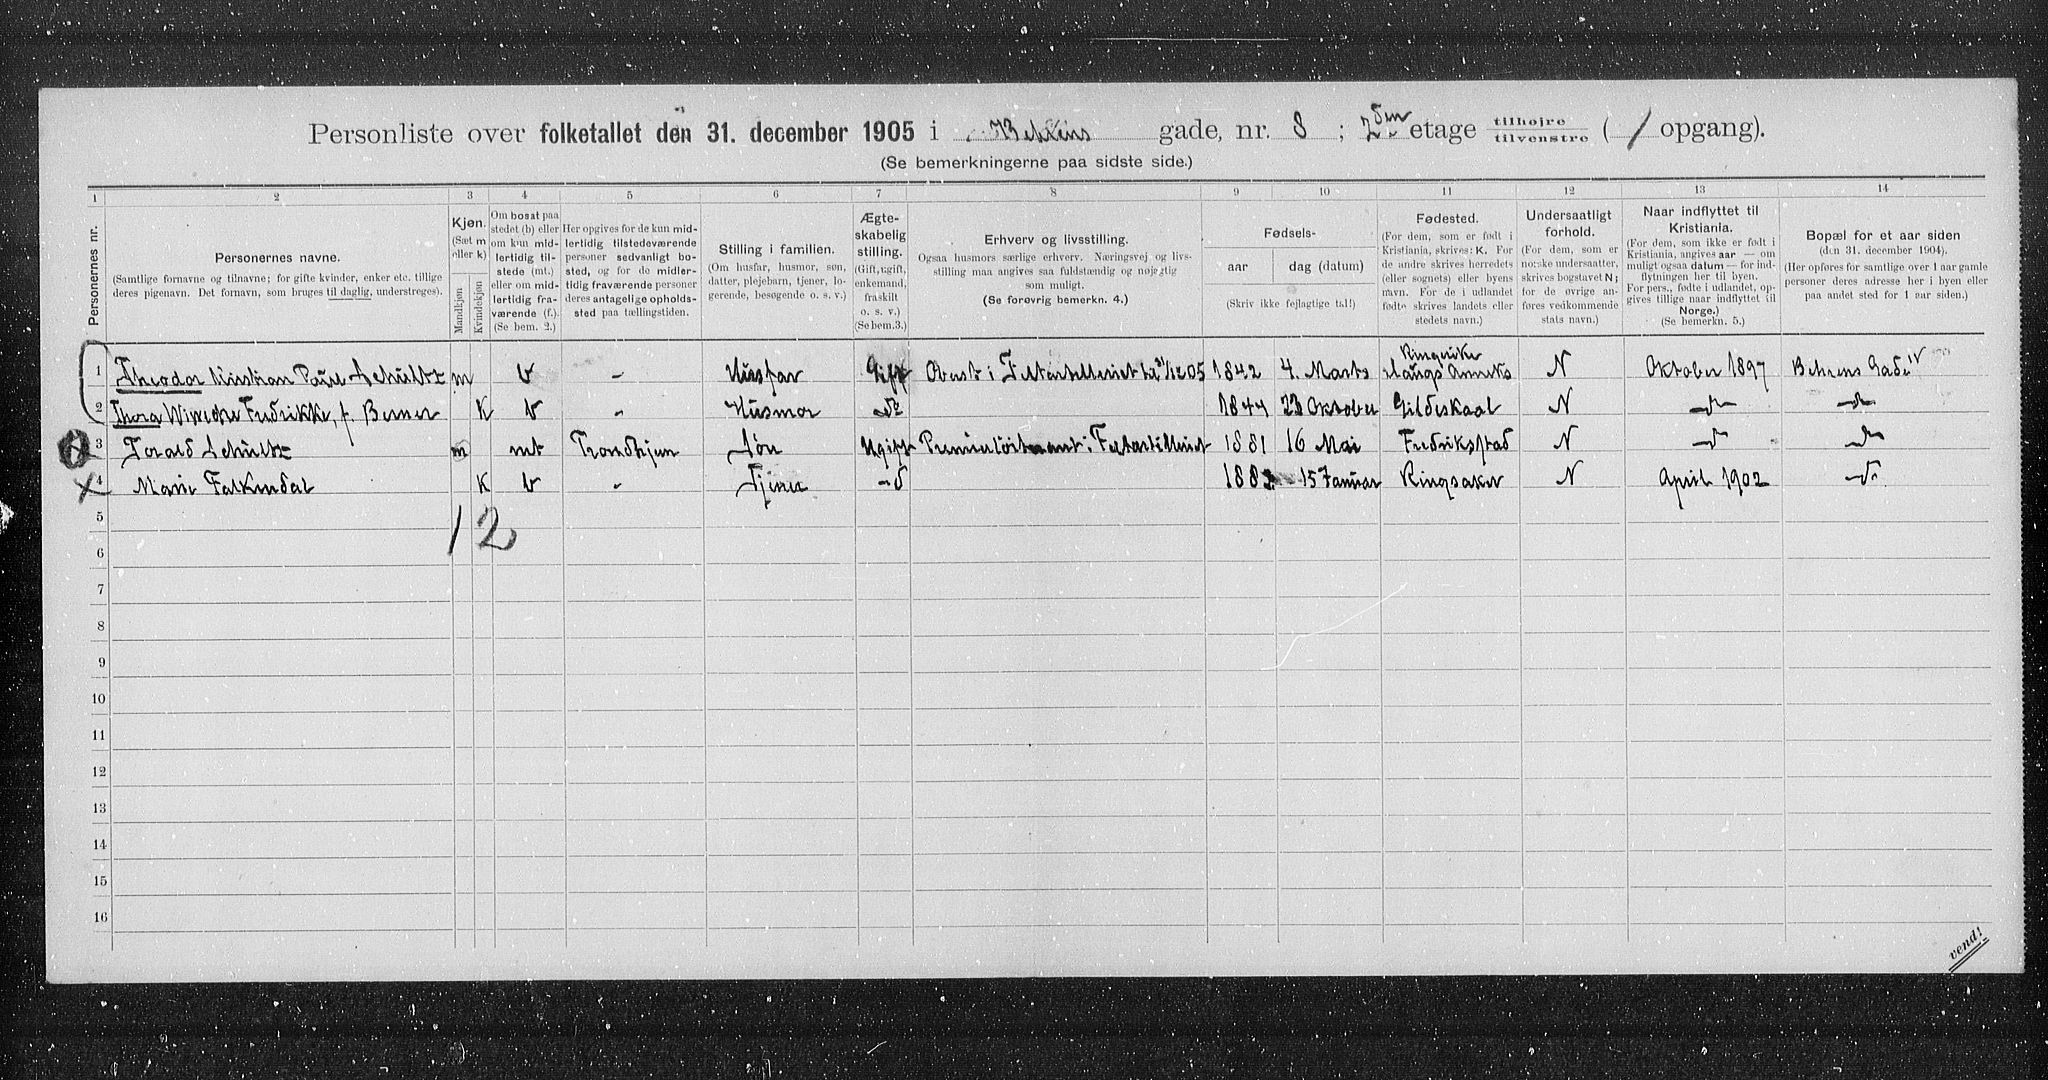 Personliste over folketallet den 31. december 1905 i Behrens gade, nr. 8 ; 2den etage tilhøjre tilvenstre ( / opgang).
(Se bemerkningerne paa sidste side.)
1 2 3 4 5 6 7 8 9 10 11 12 13 14
Personernes nr.
Personernes navne.
(Samtlige fornavne og tilnavne; for gifte kvinder, enker etc. tillige
deres pigenavn. Det fornavn, som bruges til daglig, understreges).
Kjøn.
(Sæt m
eller k)
Mandkjøn
Kvindekjøn
Om bosat paa
stedet (b) eller
om kun mid-
lertidig til-
stede (mt.)
eller om mid-
lertidig fra-
værende (f.).
(Se bem. 2.)
Her opgives for de kun mid-
lertidig tilstedeværende
personer sedvanligt bo-
sted, og for de midler-
tidig fraværende personer
deres antagelige opholds-
sted paa tællingstiden.
Stilling i familien.
(Om husfar, husmor, søn,
datter, plejebarn, tjener, lo-
gerende, besøgende o. s. v.)
Ægte-
skabelig
stilling.
(Gift, ugift,
enkemand,
fraskilt
o. s. v.)
(Se bem. 3.)
Erhverv og livsstilling.
Ogsaa husmors særlige erhverv. Næringsvej og livs-
stilling maa angives saa fuldstændig og nøjagtig
som muligt.
(Se forøvrig bemerkn. 4.)
Fødsels-
aar dag (datum)
(Skriv ikke fejlagtige tal!)
Fødested.
(For dem, som er født i
Kristiania, skrives: K. For
de andre skrives herredets
(eller sognets) eller byens
navn. For de i udlandet
fødte skrives landets eller
stedets navn.)
Undersaatligt
forhold.
(For dem, som er
norske undersaatter,
skrives bogstavet N;
for de øvrige an-
føres vedkommende
stats navn.)
Naar indflyttet til
Kristiania.
(For dem, som ikke er født i
Kristiania, angives aar — om
muligt ogsaa datum — for ind-
flytningen her til byen.
For pers., fødte i udlandet, op-
gives tillige naar indflyttet til
Norge.)
(Se bemerkn. 5.)
Bopæl for et aar siden
(den 31. december 1904).
(Her opføres for samtlige over 1 aar gamle
personer deres adresse her i byen eller
paa andet sted for 1 aar siden.)
1 Theodor Kristian Schultz m b - Husfar Gift Oberst i Feltartilleriet 1842 4. Marts Ringerike N Oktober 1897 Behrens Gade
2 Thora Fredrikke, f. Berner K b - Husmor do 1844 23 Oktober Gildeskaal N do do
3 Torald Schultz m mt Trondhjem Søn Ugift Premierløitnant i Feltartilleriet 1881 16 Mai Fredrikstad N do do
4 Marie Falkendal K b - Tjener do 15 Januar Ringsaker N April 1902 do
1 2
5
6
7
8
9
10
11
12
13
14
15
16
vend!